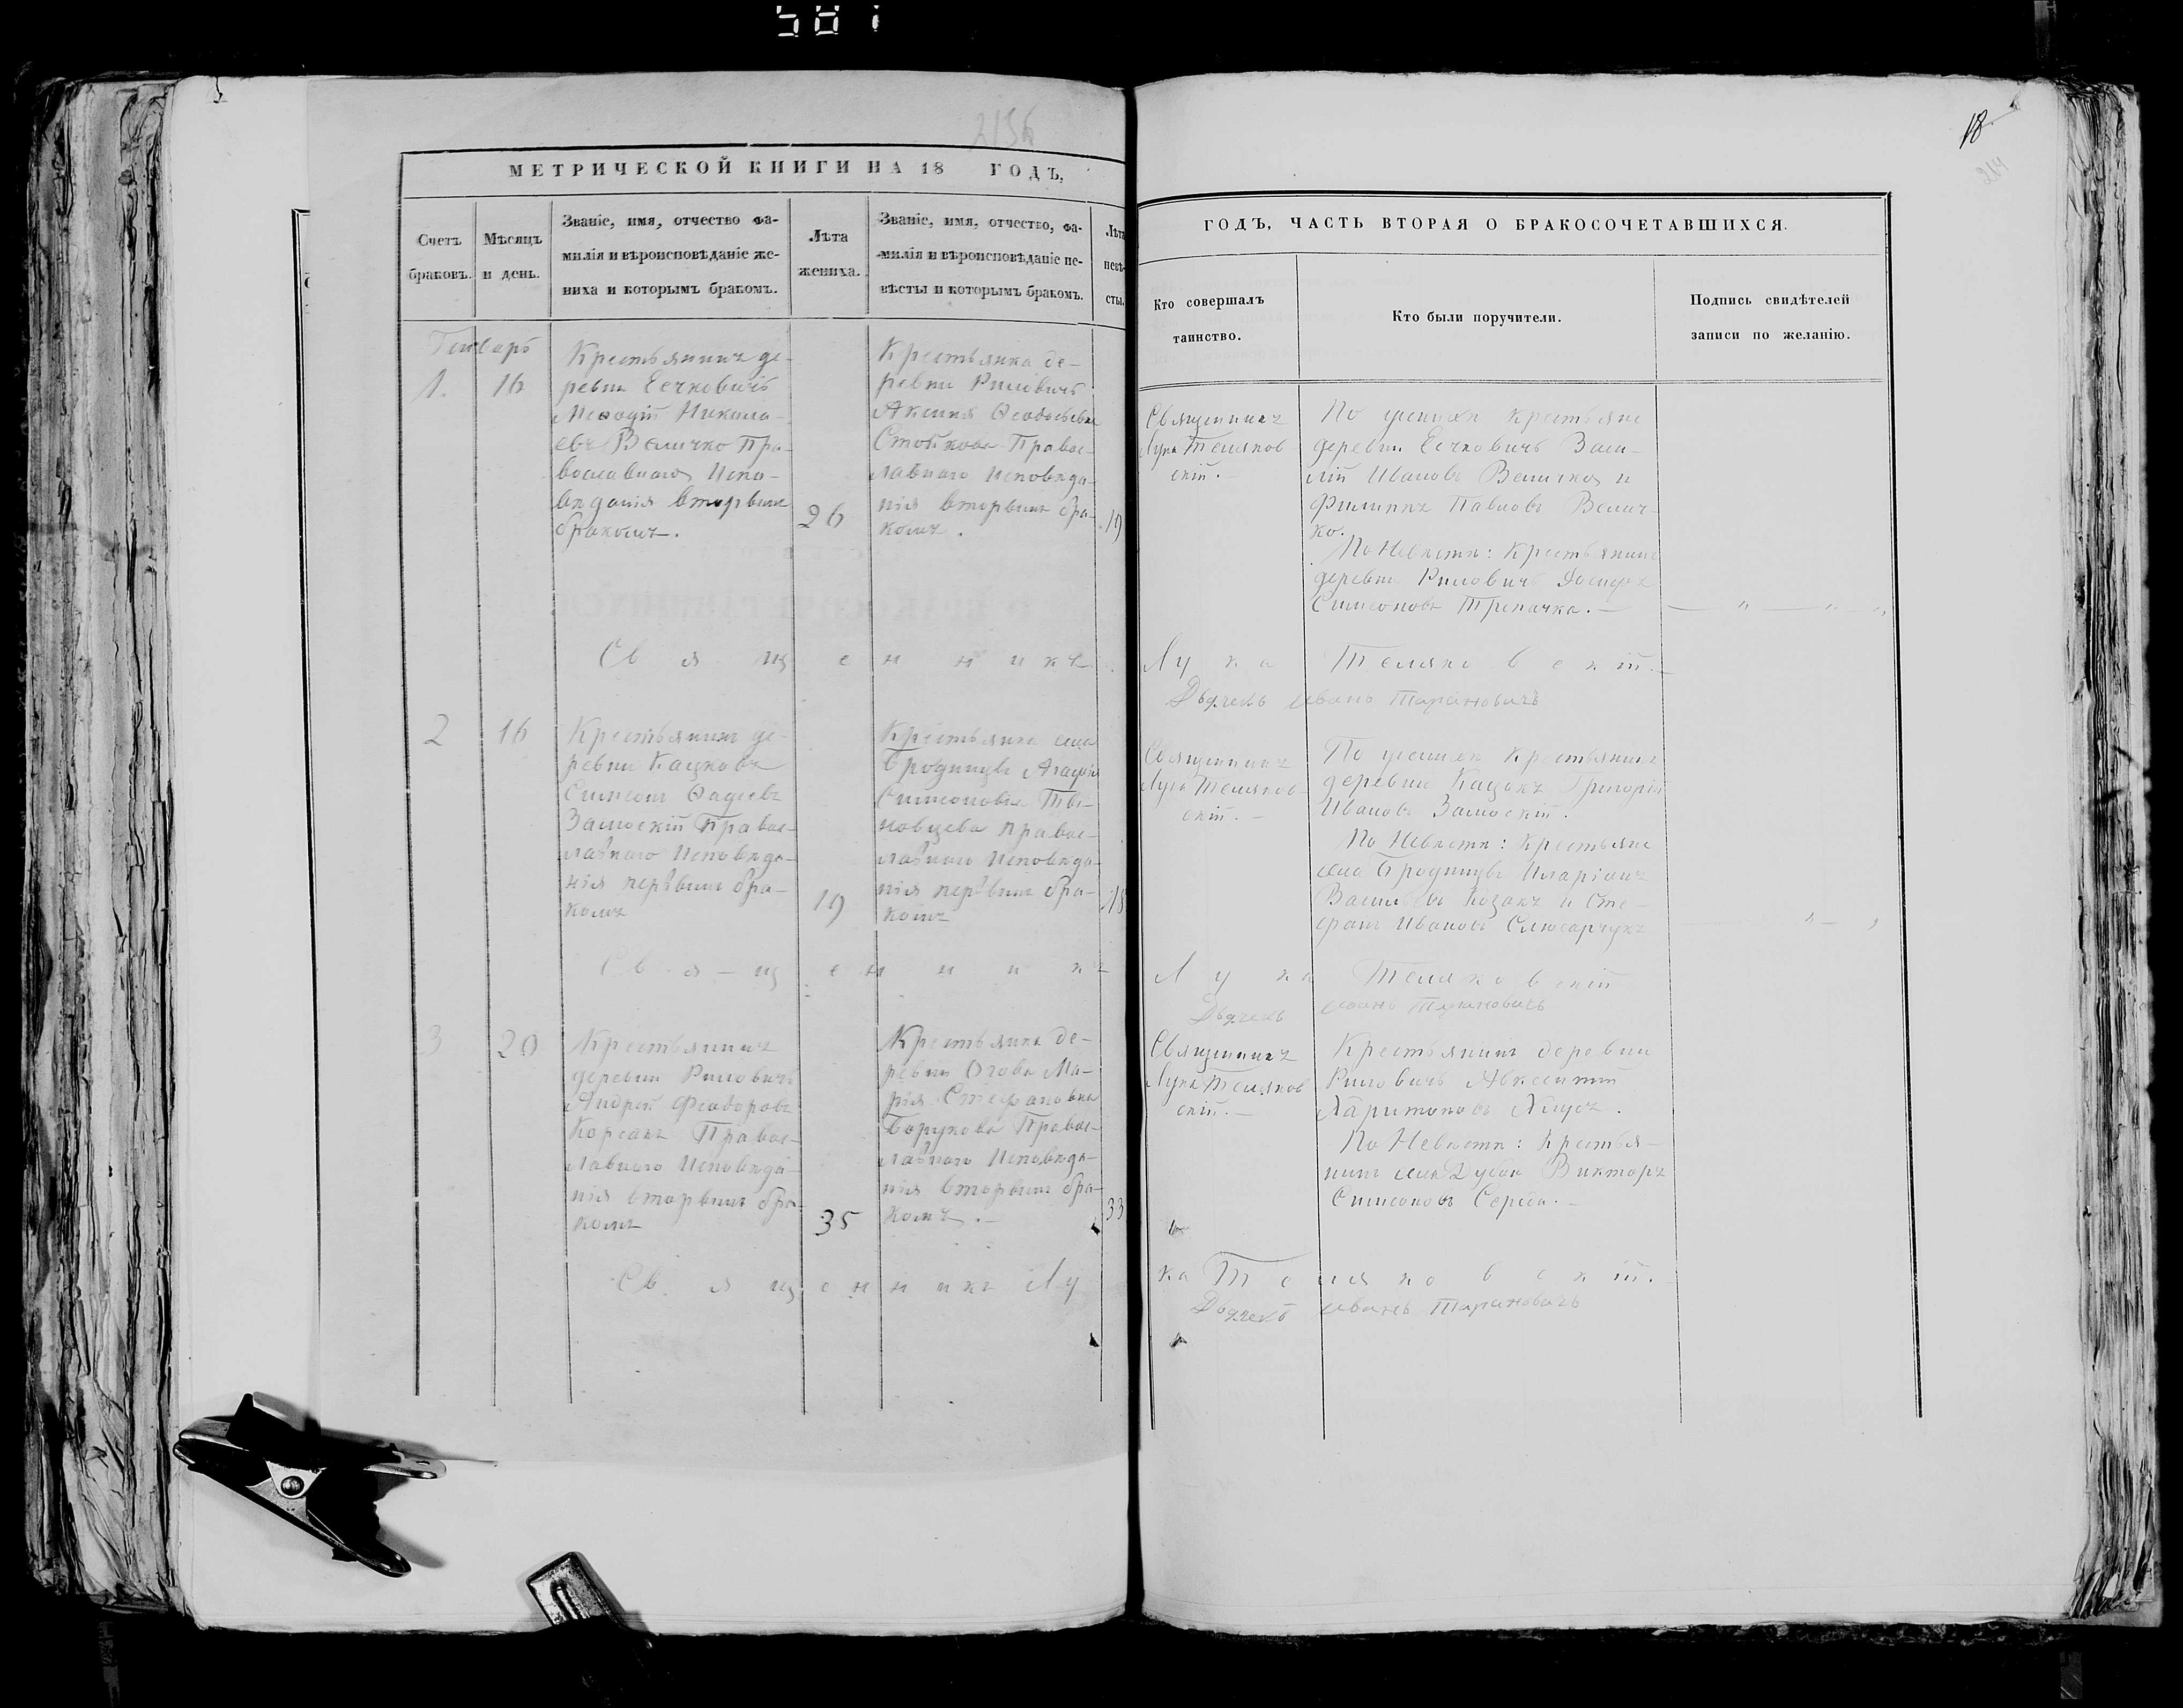 501
213б
МЕТРИЧЕСКОЙ КНИГИ НА 18 ГОДЪ,
Счетъ браковъ.
Мѣсяцъ и день.
Званіе, имя, отчество фа-
милія и вѣроисповѣданіе же-
ниха и которымъ бракомъ.
Лѣта
жениха.
Званіе, имя, отчество, фа-
милія и вѣроисповѣданіе не-
вѣсты и которымъ бракомъ.
Лѣта
невѣ-
сты.
Генварь
1.
16
Крестьянинъ де-
ревни Ечковичъ
Меѳодій Никола-
евъ Величко Пра-
вославнаго Испо-
вѣданія вторымъ
бракомъ.
26
Крестьянка де-
ревни Риловичъ
Аксинія Ѳеодосіева
Православ-
лавнаго Исповѣда-
нія вторымъ бра-
комъ.
19
Священникъ
2
16
Крестьянинъ де-
ревни
Симеонъ Ѳадеевъ
Замоскій Правос-
лавнаго Исповѣда-
нія первымъ бра-
комъ
19
Крестьянка села
Бродницы Агафія
Симеонова
Правос-
лавнаго Исповѣда-
нія первымъ бра-
комъ
18
Священникъ
3
20
Крестьянинъ
деревни Риловичъ
Андрей Феодоровъ
Корсакъ Правос-
лавнаго Исповѣда-
нія вторымъ бра-
комъ
35
Крестьянка де-
ревни Огова Ма-
рія Стефановна
Борукова Правос-
лавнаго Исповѣда-
нія вторымъ бра-
комъ.
33
Священникъ Лу
18
214
ГОДЪ, ЧАСТЬ ВТОРАЯ О БРАКОСОЧЕТАВШИХСЯ.
Кто совершалъ
таинство.
Кто были поручители.
Подпись свидѣтелей
записи по желанію.
Священникъ
Лука Теляков
скій.
По женихѣ Крестьяне
деревни Ечковичъ Васи-
лій Ивановъ Величко и
Филиппъ Павловъ Велич-
ко.
По Невѣстѣ: Крестьянинъ
деревни Риловичъ
Симеоновъ Трепачка.
Лука Теляковскій.
Дьячекъ Иванъ Тарановичъ
Священникъ
Лука Теляков-
скій.
По женихѣ Крестьянинъ
деревни Кацокъ Григорій
Ивановъ Замоскій.
По Невѣстѣ: Крестьяне
села Бродницы Иларіонъ
Васильевъ Козакъ и Сте-
фанъ Ивановъ Слюсарчукъ
Лука Теляковскій
Дьячекъ Иванъ Тарановичъ
Священникъ
Лука Теляков
скій.
Крестьянинъ деревни
Риловичъ Авксентій
Харитоновъ
По Невѣстѣ: Крестья-
нинъ села Дубои Викторъ
Симеоновъ
ка Теляковскій.
Дьячекъ Иванъ Тарановичъ